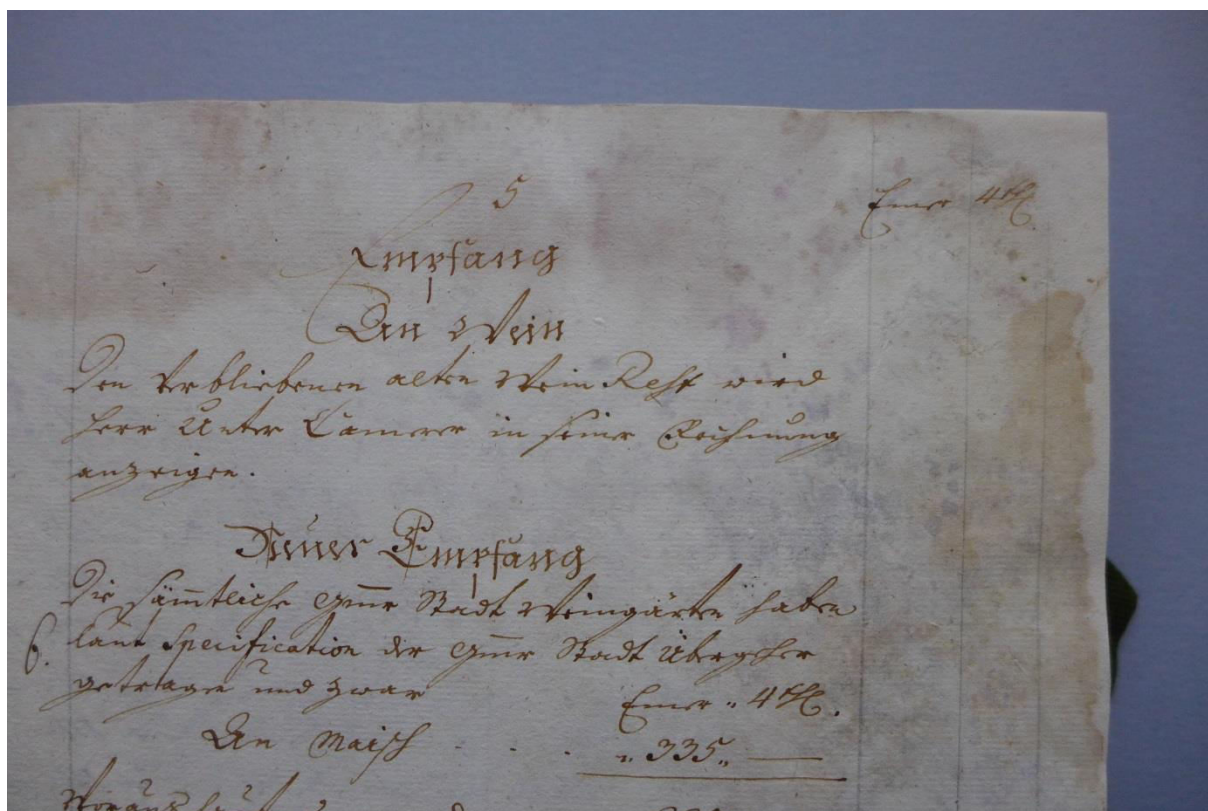 5
Emer 4tl.
Empfang
An Wein
Den Verbliebenen alten Wein Rest wird
Herr Unter Camerer in seiner Rechnung
anzeigen.
Neuer Empfang
Die säm̄tliche gm̄r Stadt Weingärten haben
6. laut Specification der gm̄r Stadt Übergeher
getragen und zwar
Emer „ 4tl.
An Maisch . . . „ 335 „ —